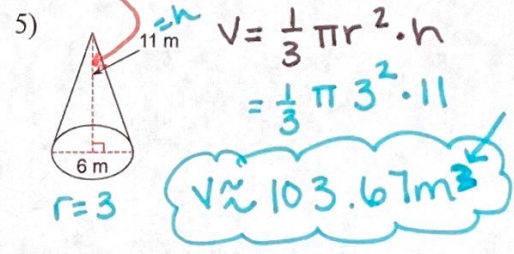 5)
=h
11 m
6 m
r=3
V= 1/3 πr²·h
= 1/3 π 3²·11
V≈ 103.67m³